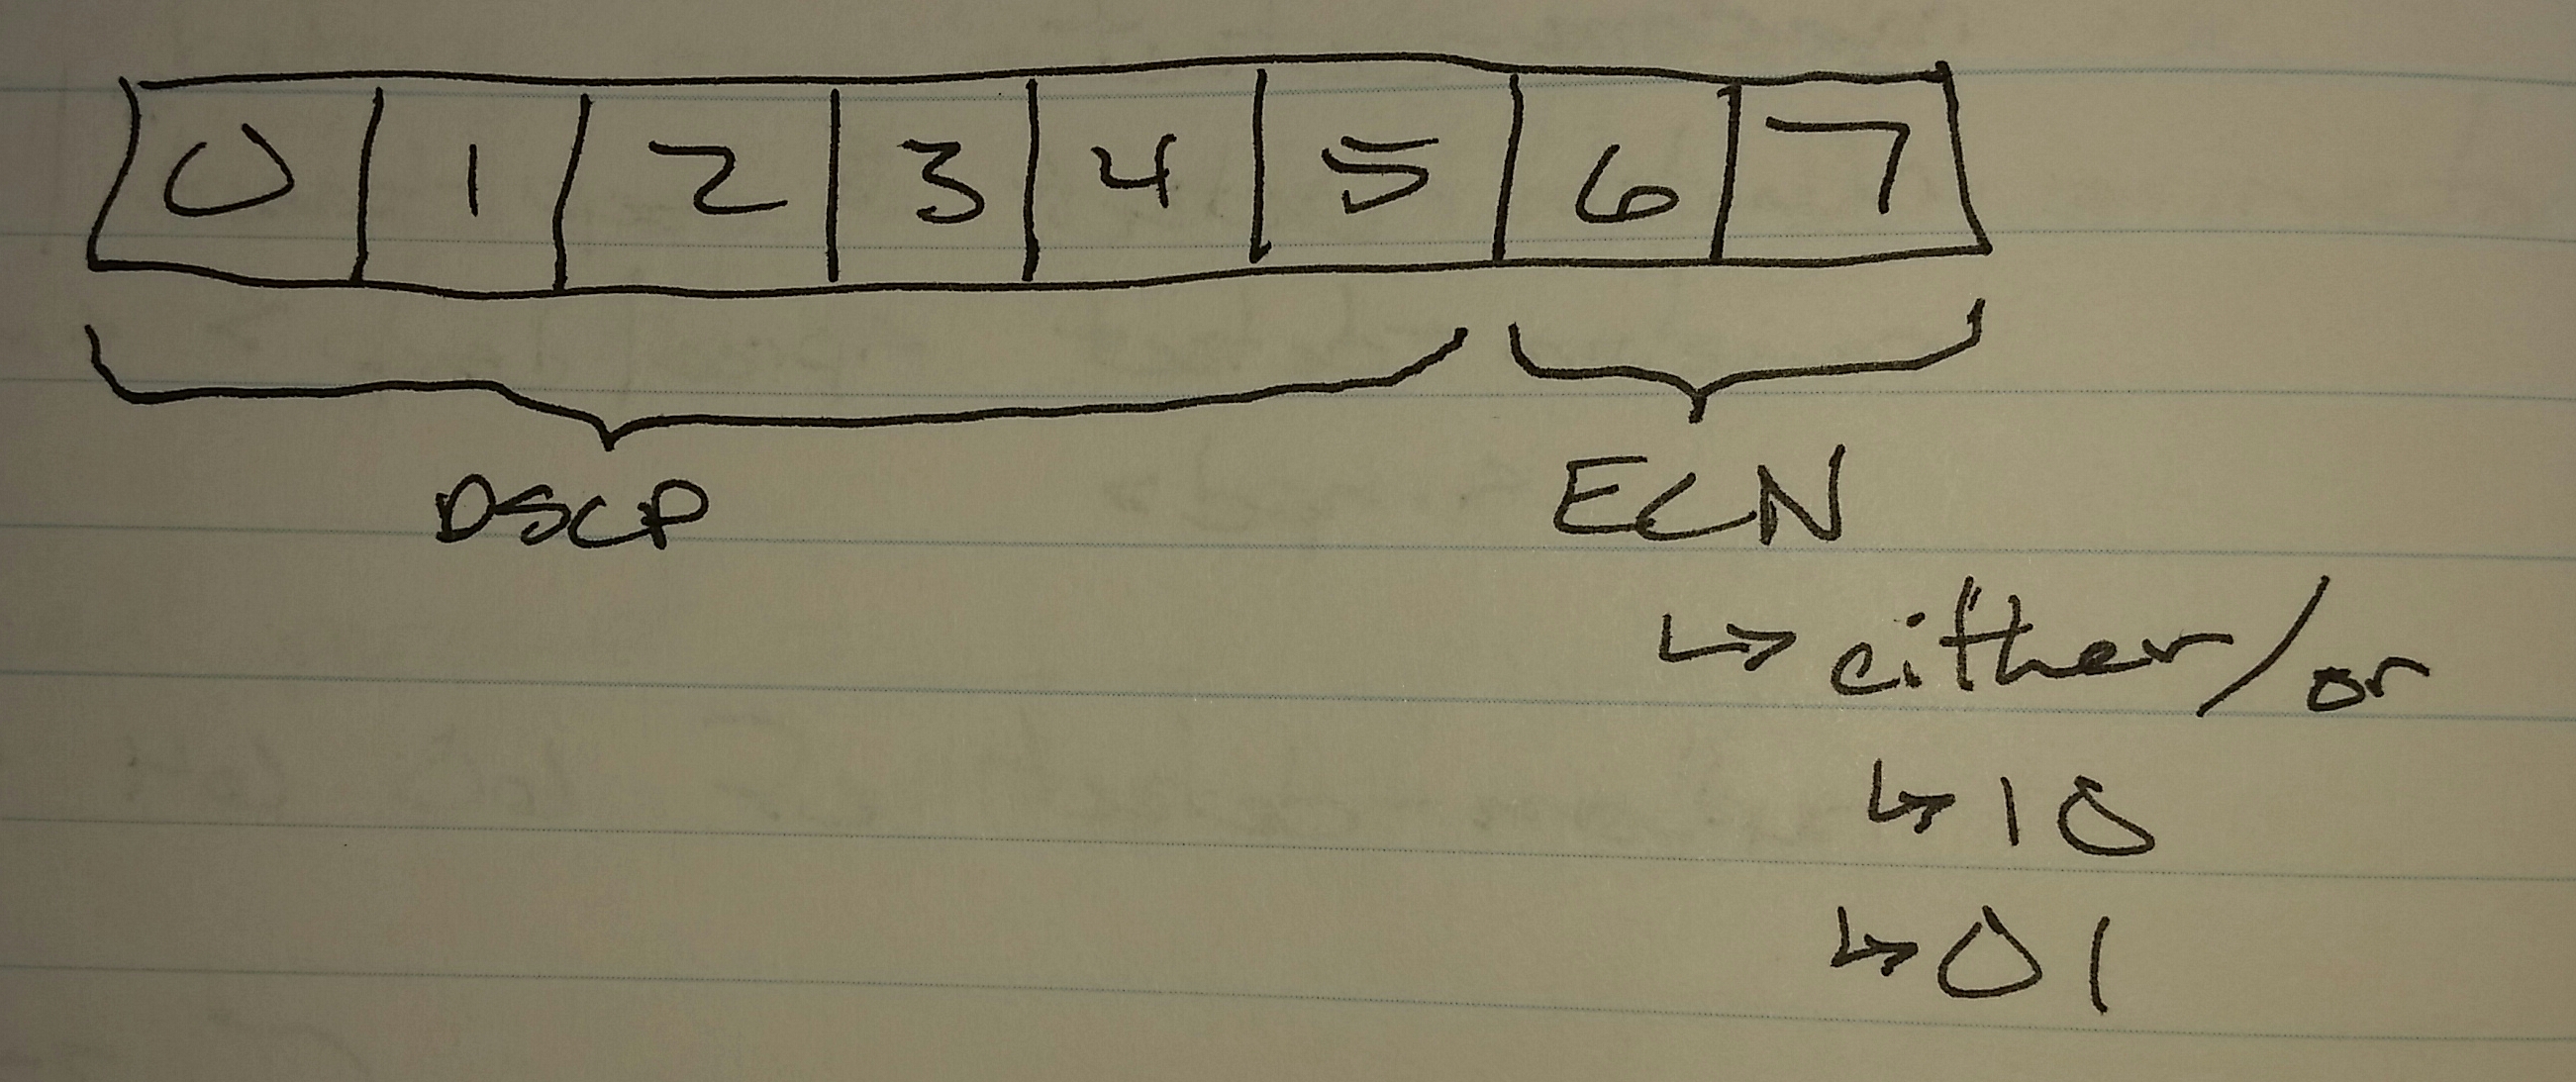 0 1 2 3 4 5 6 7
DSCP ECN
↳ either/or
↳ 10
↳ 01